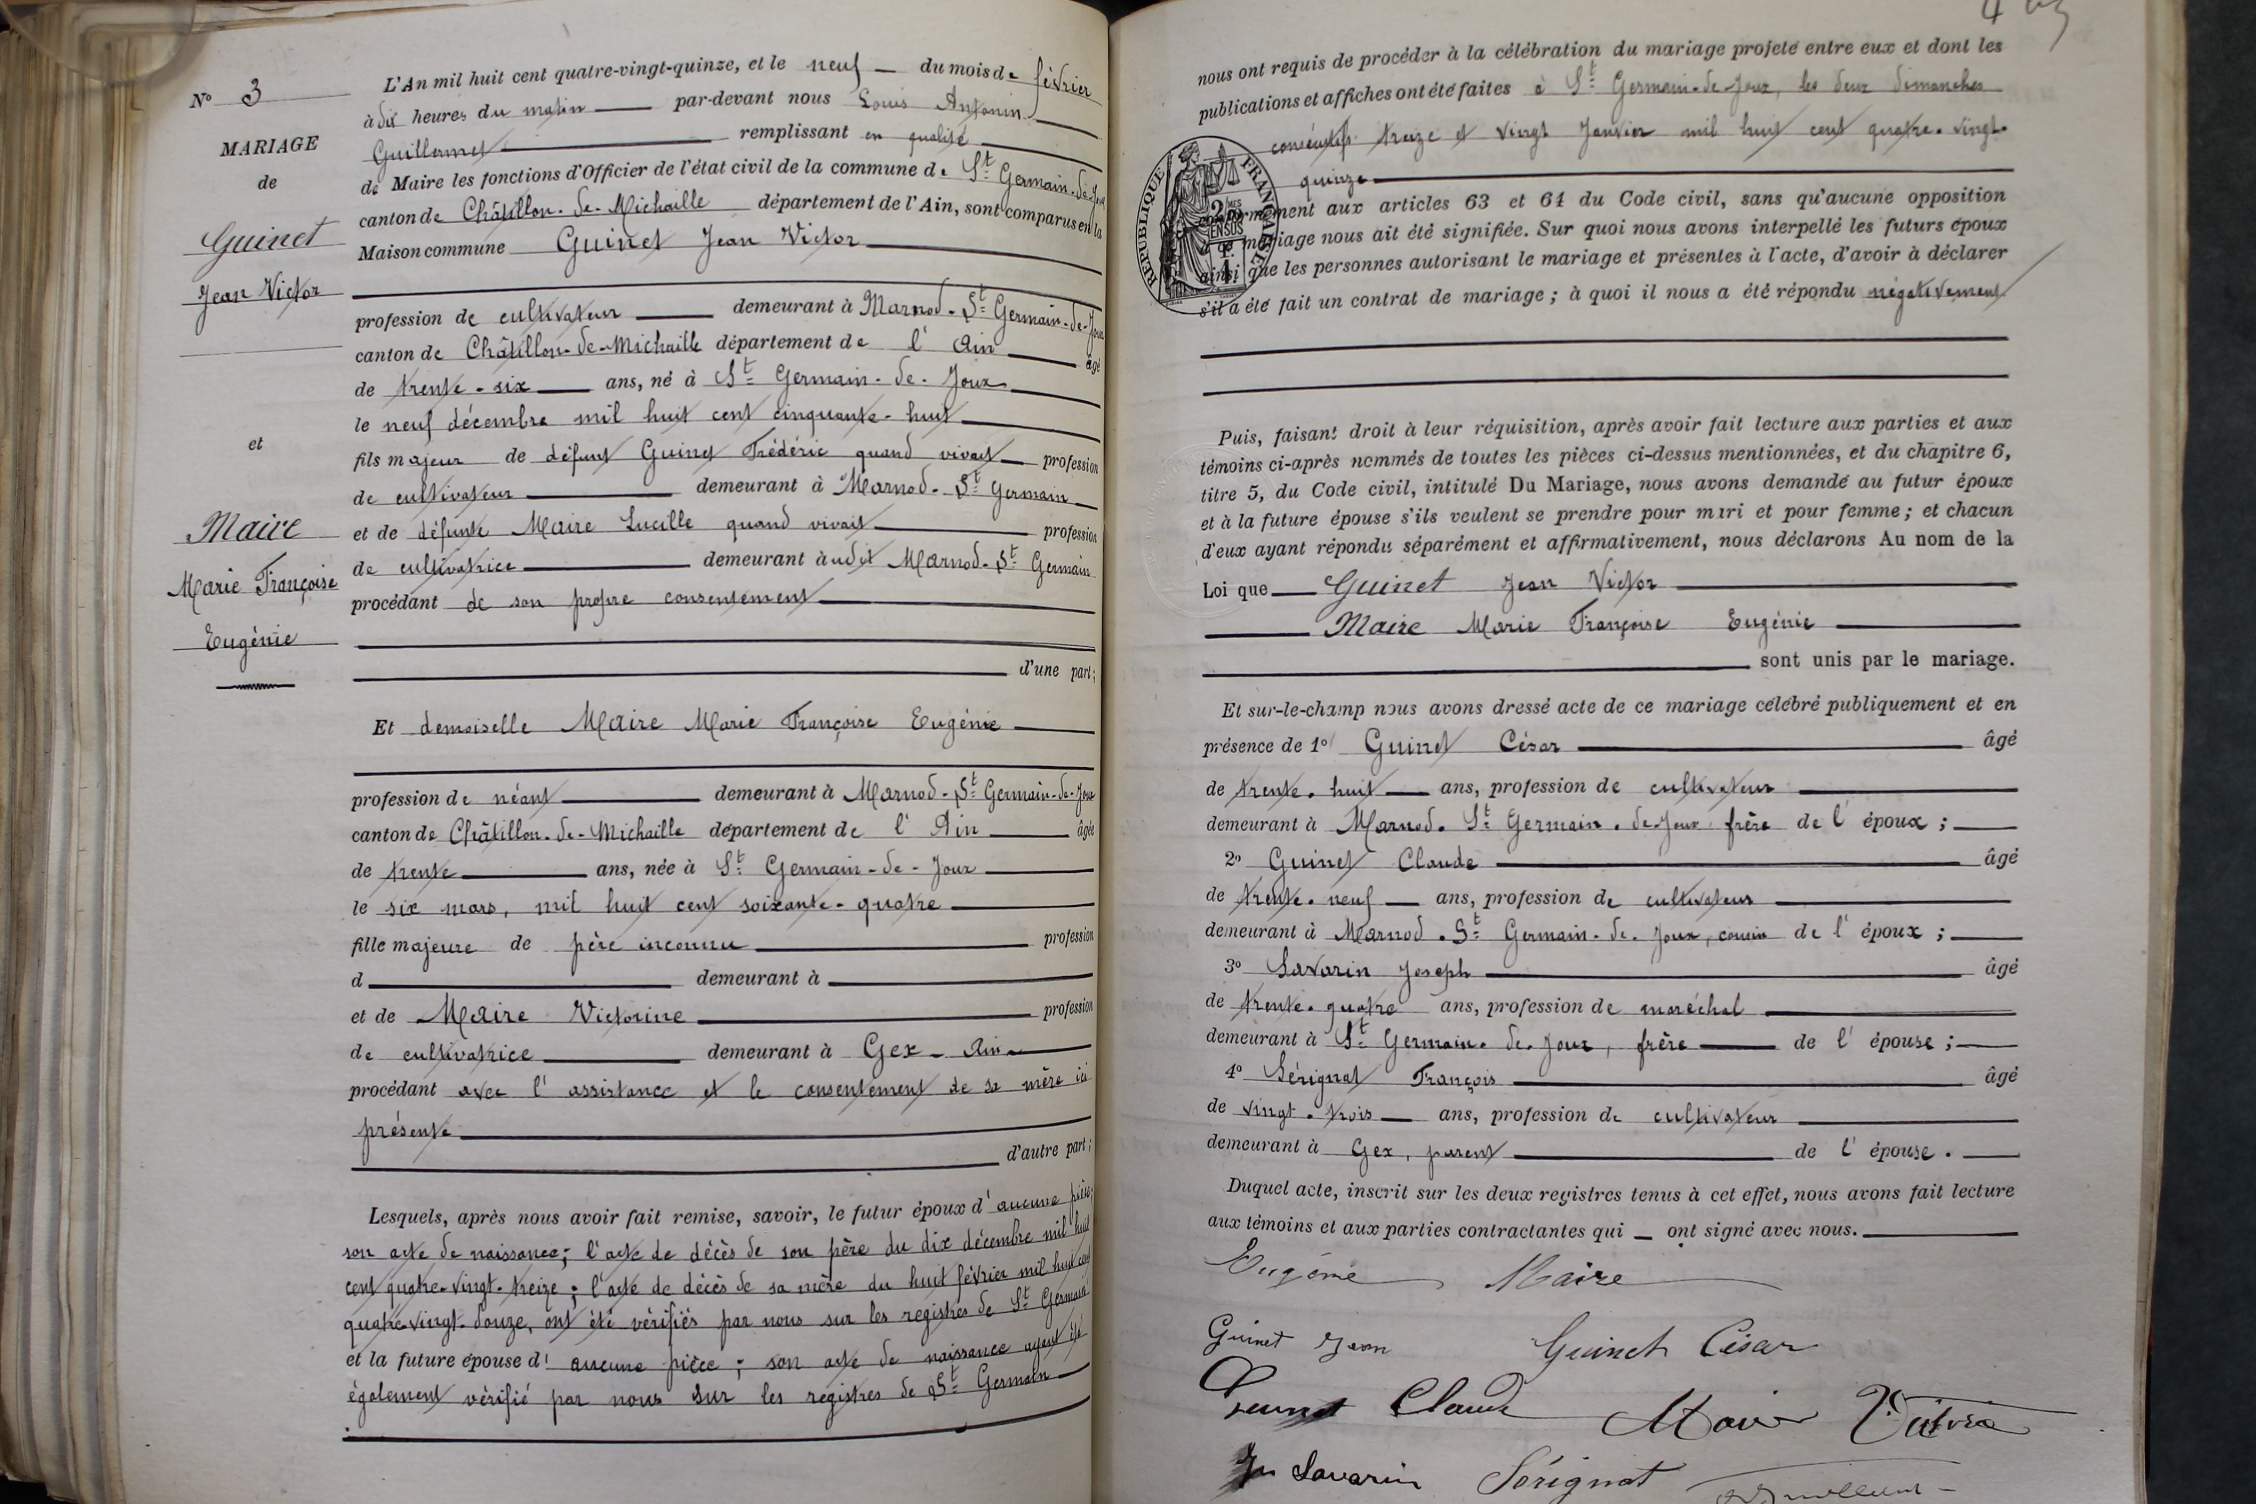 N° 3
MARIAGE
de
Guinet
Jean Victor
et
Maire
Marie Françoise
Eugénie
L'An mil huit cent quatre-vingt-quinze, et le neuf du mois de février
à dix heures du matin par-devant nous Louis Antonin
Guillermet remplissant en qualité
de Maire les fonctions d'Officier de l'état civil de la commune de St Germain-de-Joux
canton de Châtillon-de-Michaille département de l'Ain, sont comparus en la
Maison commune Guinet Jean Victor
profession de cultivateur demeurant à Marnod-St Germain-de-Joux
canton de Châtillon-de-Michaille département de l'Ain âgé
de trente-six ans, né à St Germain-de-Joux
le neuf décembre mil huit cent cinquante-huit
fils majeur de défunt Guinet Frédéric quand vivait profession
de cultivateur demeurant à Marnod-St Germain
et de défunte Maire Lucille quand vivait profession
de cultivatrice demeurant audit Marnod-St Germain
procédant de son propre consentement
d'une part;
Et demoiselle Maire Marie Françoise Eugénie
profession de néant demeurant à Marnod-St Germain-de-Joux
canton de Châtillon-de-Michaille département de l'Ain âgée
de trente ans, née à St Germain-de-Joux
le six mars, mil huit cent soixante-quatre
fille majeure de père inconnu profession
d demeurant à
et de Maire Victorine profession
de cultivatrice demeurant à Gex-Ain
procédant avec l'assistance et le consentement de sa mère ici
présente
d'autre part;
Lesquels, après nous avoir fait remise, savoir, le futur époux d'aucune pièce;
son acte de naissance; l'acte de décès de son père du dix décembre mil huit
cent quatre-vingt-treize; l'acte de décès de sa mère du huit février mil huit cent
quatre-vingt-douze, ont été vérifiés par nous sur les registres de St Germain
et la future épouse d'aucune pièce; son acte de naissance ayant été
également vérifié par nous sur les registres de St Germain
nous ont requis de procéder à la célébration du mariage projeté entre eux et dont les
publications et affiches ont été faites à St Germain-de-Joux, les deux dimanches
consécutifs treize et vingt Janvier mil huit cent quatre-vingt-
quinze
RÉPUBLIQUE FRANÇAISE
conformément aux articles 63 et 64 du Code civil, sans qu'aucune opposition
à ce mariage nous ait été signifiée. Sur quoi nous avons interpellé les futurs époux
ainsi que les personnes autorisant le mariage et présentes à l'acte, d'avoir à déclarer
s'il a été fait un contrat de mariage; à quoi il nous a été répondu négativement
Puis, faisant droit à leur réquisition, après avoir fait lecture aux parties et aux
témoins ci-après nommés de toutes les pièces ci-dessus mentionnées, et du chapitre 6,
titre 5, du Code civil, intitulé Du Mariage, nous avons demandé au futur époux
et à la future épouse s'ils veulent se prendre pour mari et pour femme; et chacun
d'eux ayant répondu séparément et affirmativement, nous déclarons Au nom de la
Loi que Guinet Jean Victor
Maire Marie Françoise Eugénie
sont unis par le mariage.
Et sur-le-champ nous avons dressé acte de ce mariage célébré publiquement et en
présence de 1° Guinet César âgé
de trente-huit ans, profession de cultivateur
demeurant à Marnod-St Germain-de-Joux frère de l'époux;
2° Guinet Claude âgé
de trente-neuf ans, profession de cultivateur
demeurant à Marnod-St Germain-de-Joux, cousin de l'époux;
3° Savarin Joseph âgé
de trente-quatre ans, profession de maréchal
demeurant à St Germain-de-Joux, frère de l'épouse;
4° Sérignat François âgé
de vingt-trois ans, profession de cultivateur
demeurant à Gex, parent de l'épouse.
Duquel acte, inscrit sur les deux registres tenus à cet effet, nous avons fait lecture
aux témoins et aux parties contractantes qui ont signé avec nous.
Eugénie Maire
Guinet Jean Guinet César
Guinet Claude Maire
Jh Savarin Sérignat